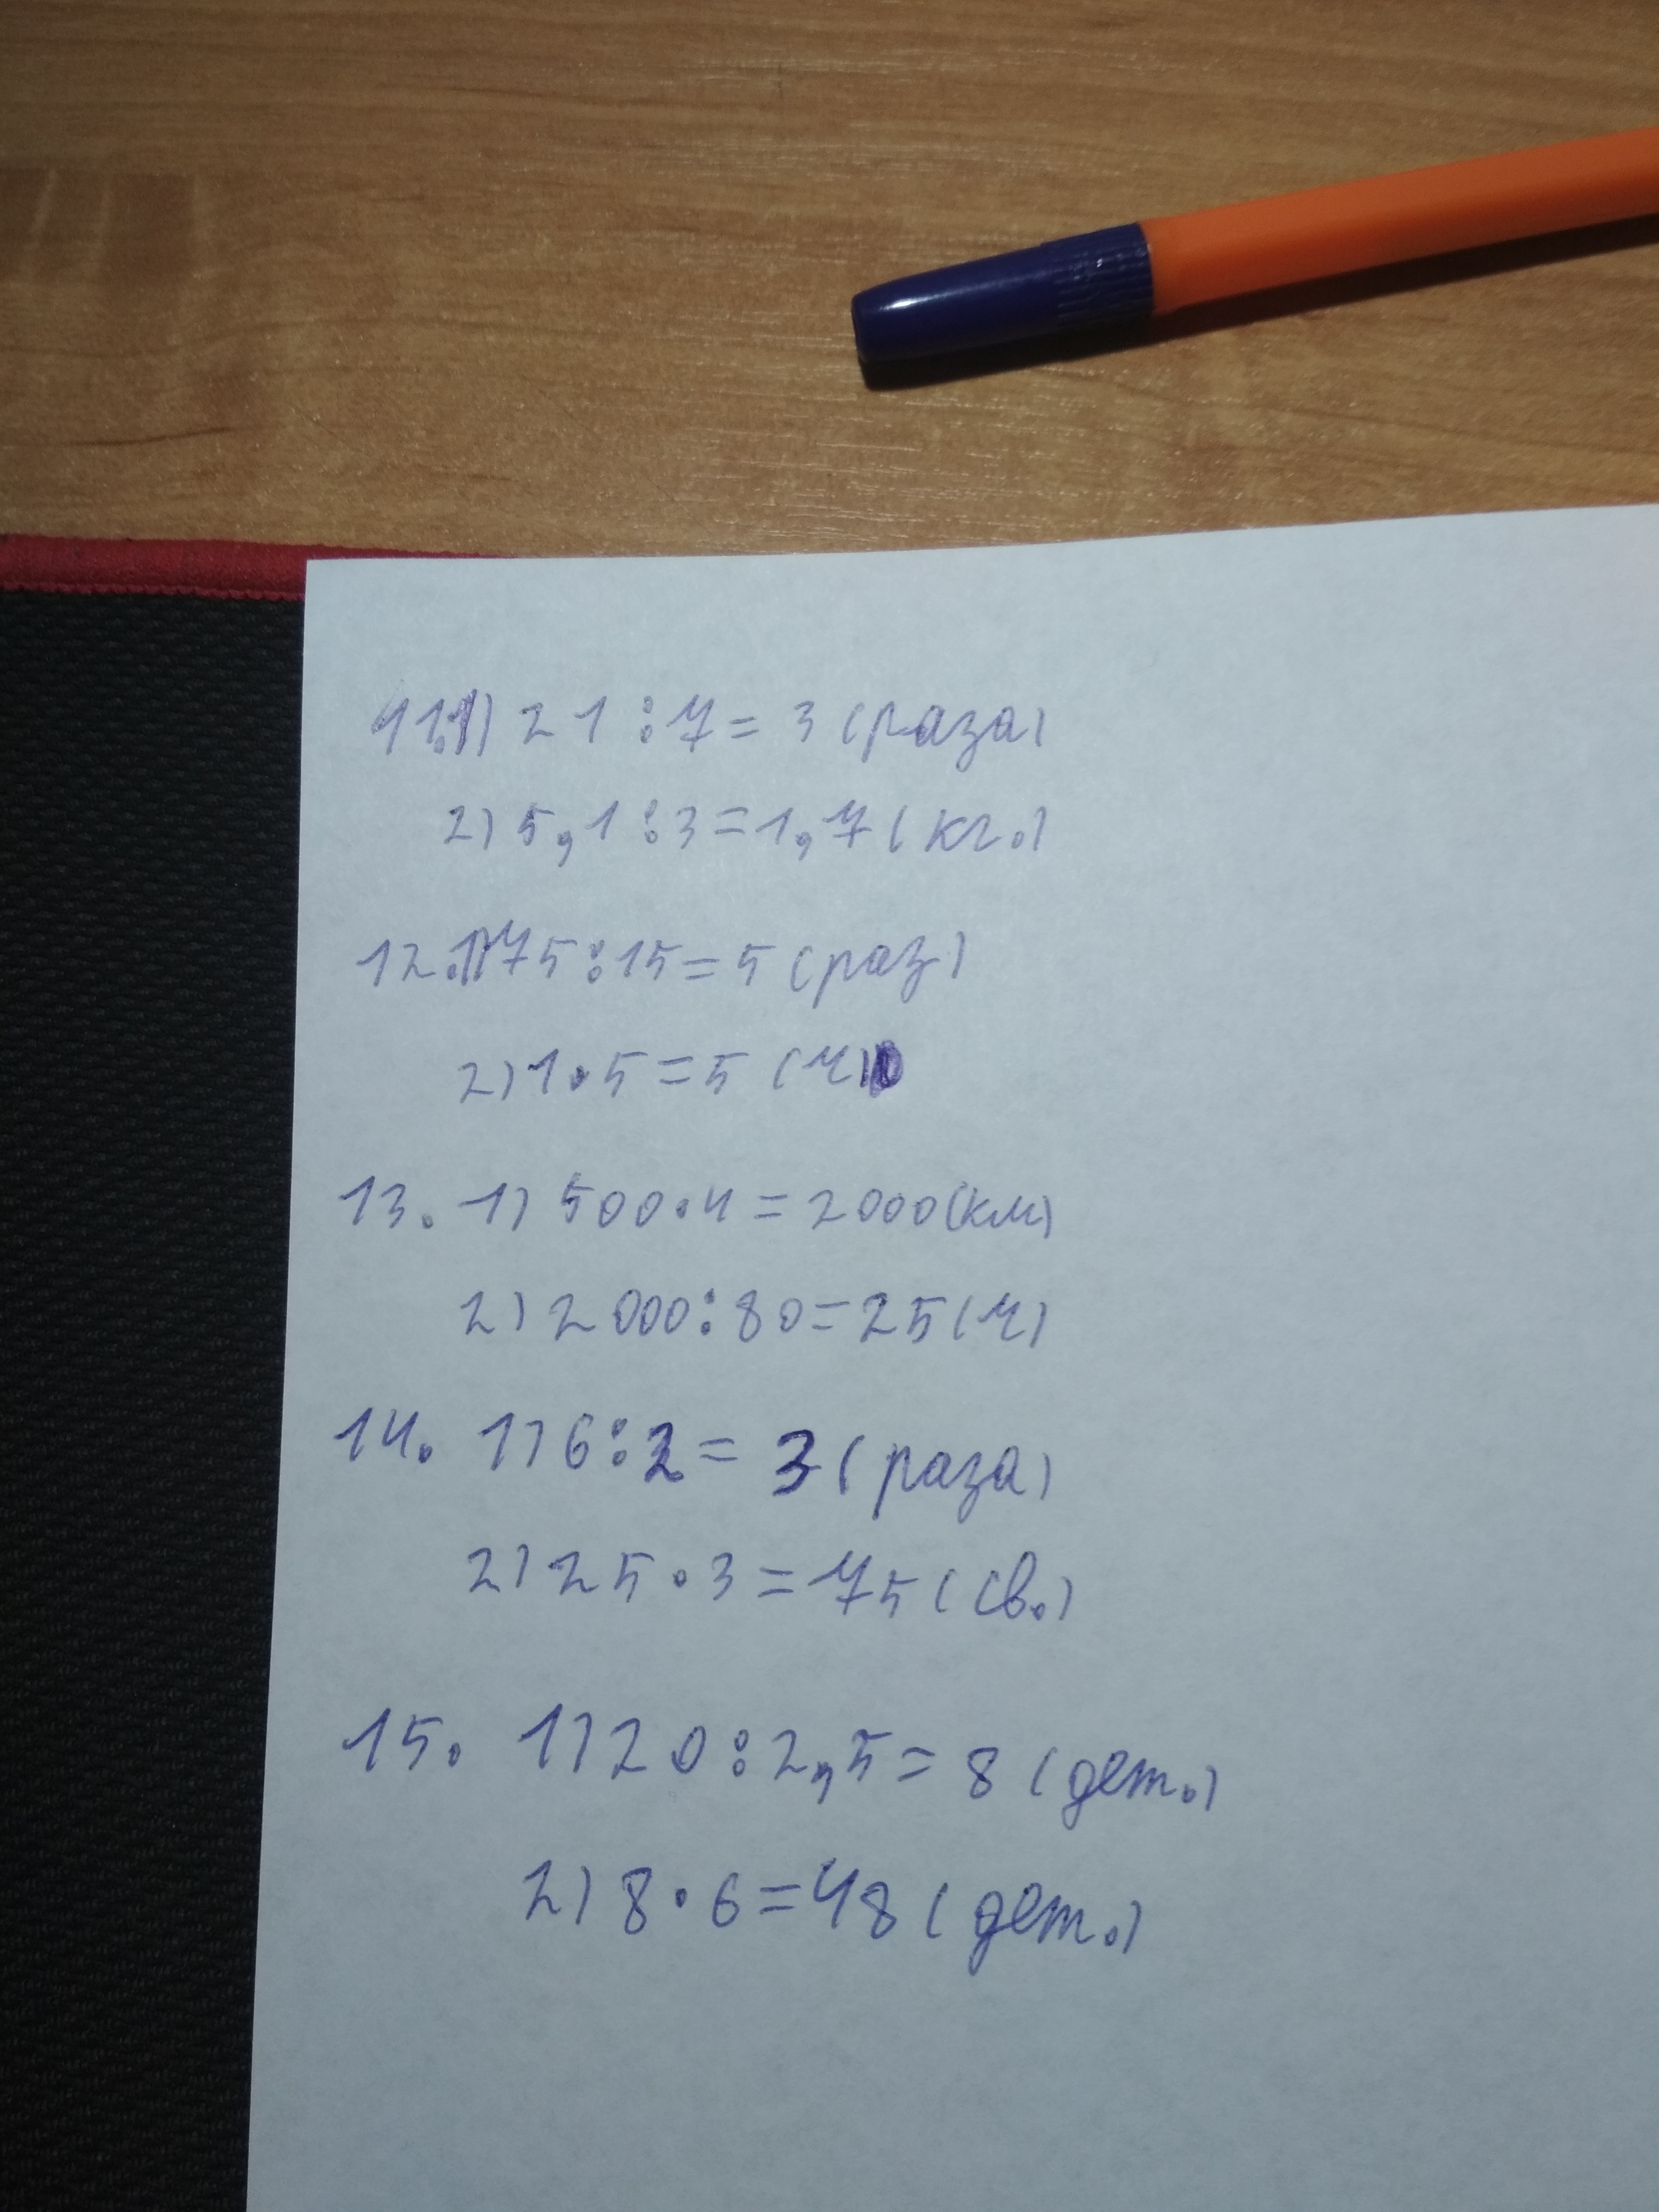 11.1) 21:7=3(раза)
2) 5,1:3=1,7(кг.)
12.1)75:15=5(раз)
2)1·5=5(ч)
13. 1) 500·4=2000(км)
2) 2000:80=25(ч)
14. 1)6:2=3(раза)
2)25·3=75(св.)
15. 1)20:2,5=8(дет.)
2)8·6=48(дет.)